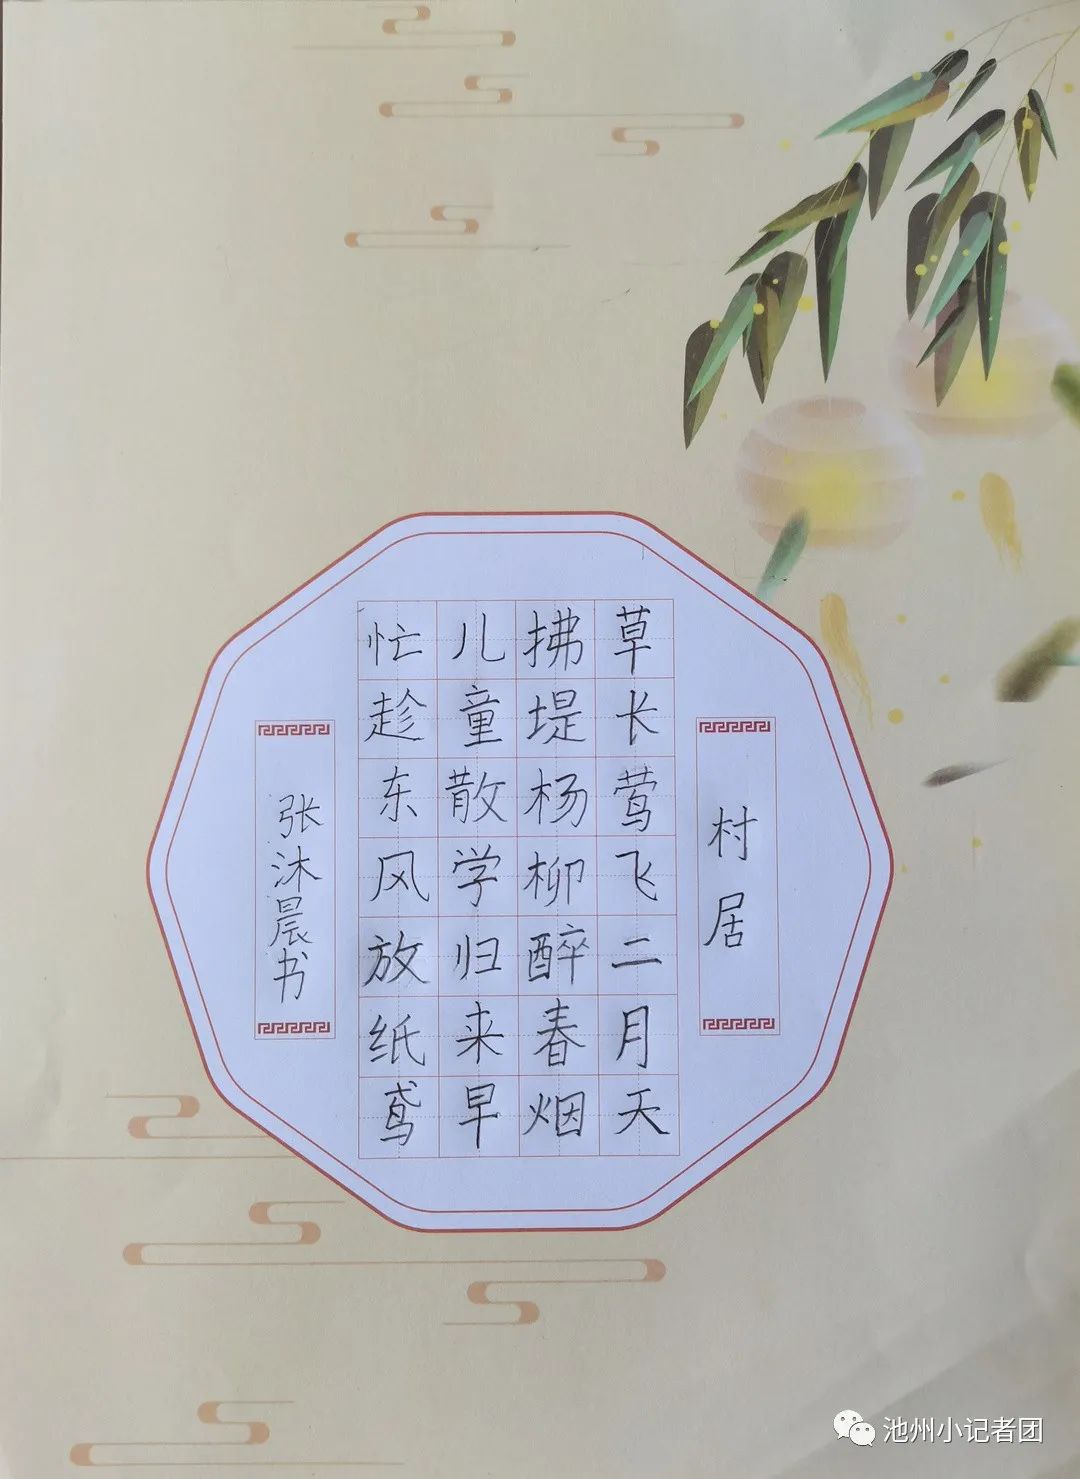 村居
草长莺飞二月天
拂堤杨柳醉春烟
儿童散学归来早
忙趁东风放纸鸢
张沐晨书
池州小记者团